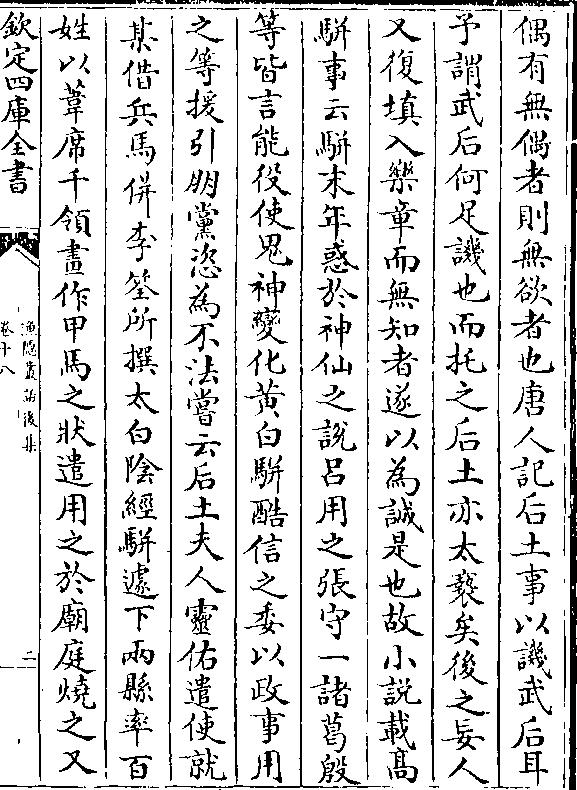 偶有無偶者則無欲者也唐人記后土事以譏武后耳
予謂武后何足譏也而托之后土亦太褻矣後之妄人
又復填入樂章而無知者遂以為誠是也故小說載髙
駢事云駢末年惑於神仙之說呂用之張守一諸葛殷
等皆言能役使鬼神變化黃白駢酷信之委以政事用
之等援引朋黨恣為不法嘗云后土夫人靈佑遣使就
某借兵馬併李筌所撰太白陰經駢遽下兩縣率百
姓以葦席千領畫作甲馬之狀遣用之於廟庭燒之又
欽定四庫全書
漁隱叢話後集
卷十八
二